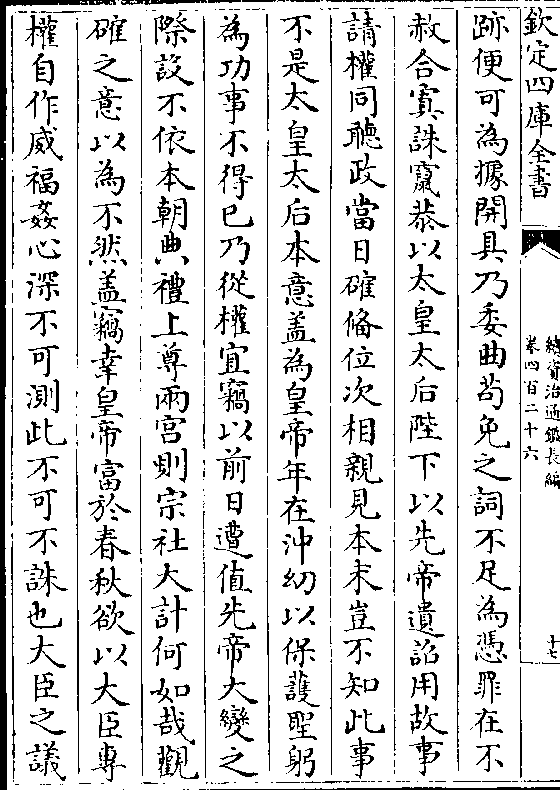 欽定四庫全書
續資治通鑑長編
卷四百二十六
十七
跡便可為據開具乃委曲苟免之詞不足為憑罪在不
赦合寘誅竄恭以太皇太后陛下以先帝遺詔用故事
請權同聽政當日確俻位次相親見本末豈不知此事
不是太皇太后本意盖為皇帝年在沖幼以保護聖躬
為功事不得已乃從權宜竊以前日遭值先帝大變之
際設不依本朝典禮上尊兩宫則宗社大計何如哉觀
確之意以為不然盖竊幸皇帝富於春秋欲以大臣專
權自作威福姦心深不可測此不可不誅也大臣之議